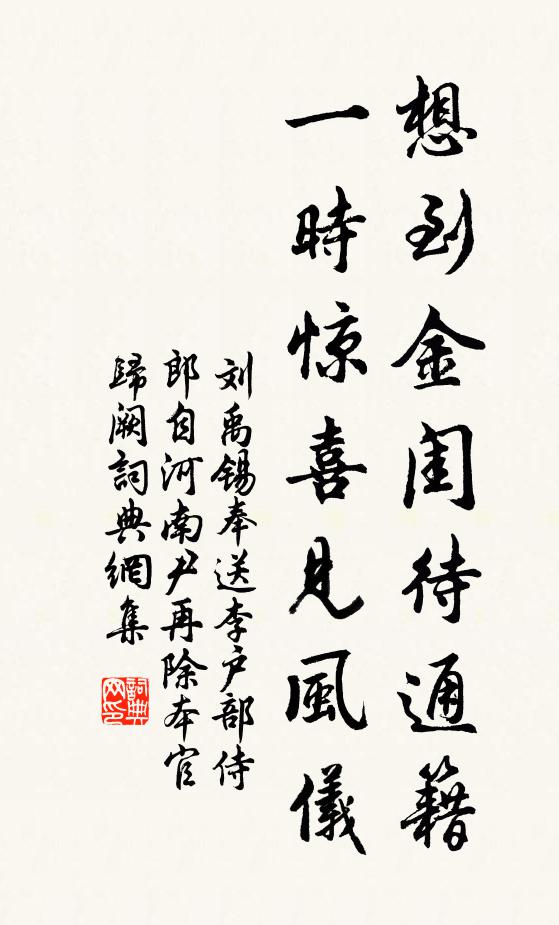 想到金闺待通籍
一時惊喜見風儀
刘禹锡奉送李户部侍
郎自河南尹再除本官
歸阙詞典網集
詞典
网印